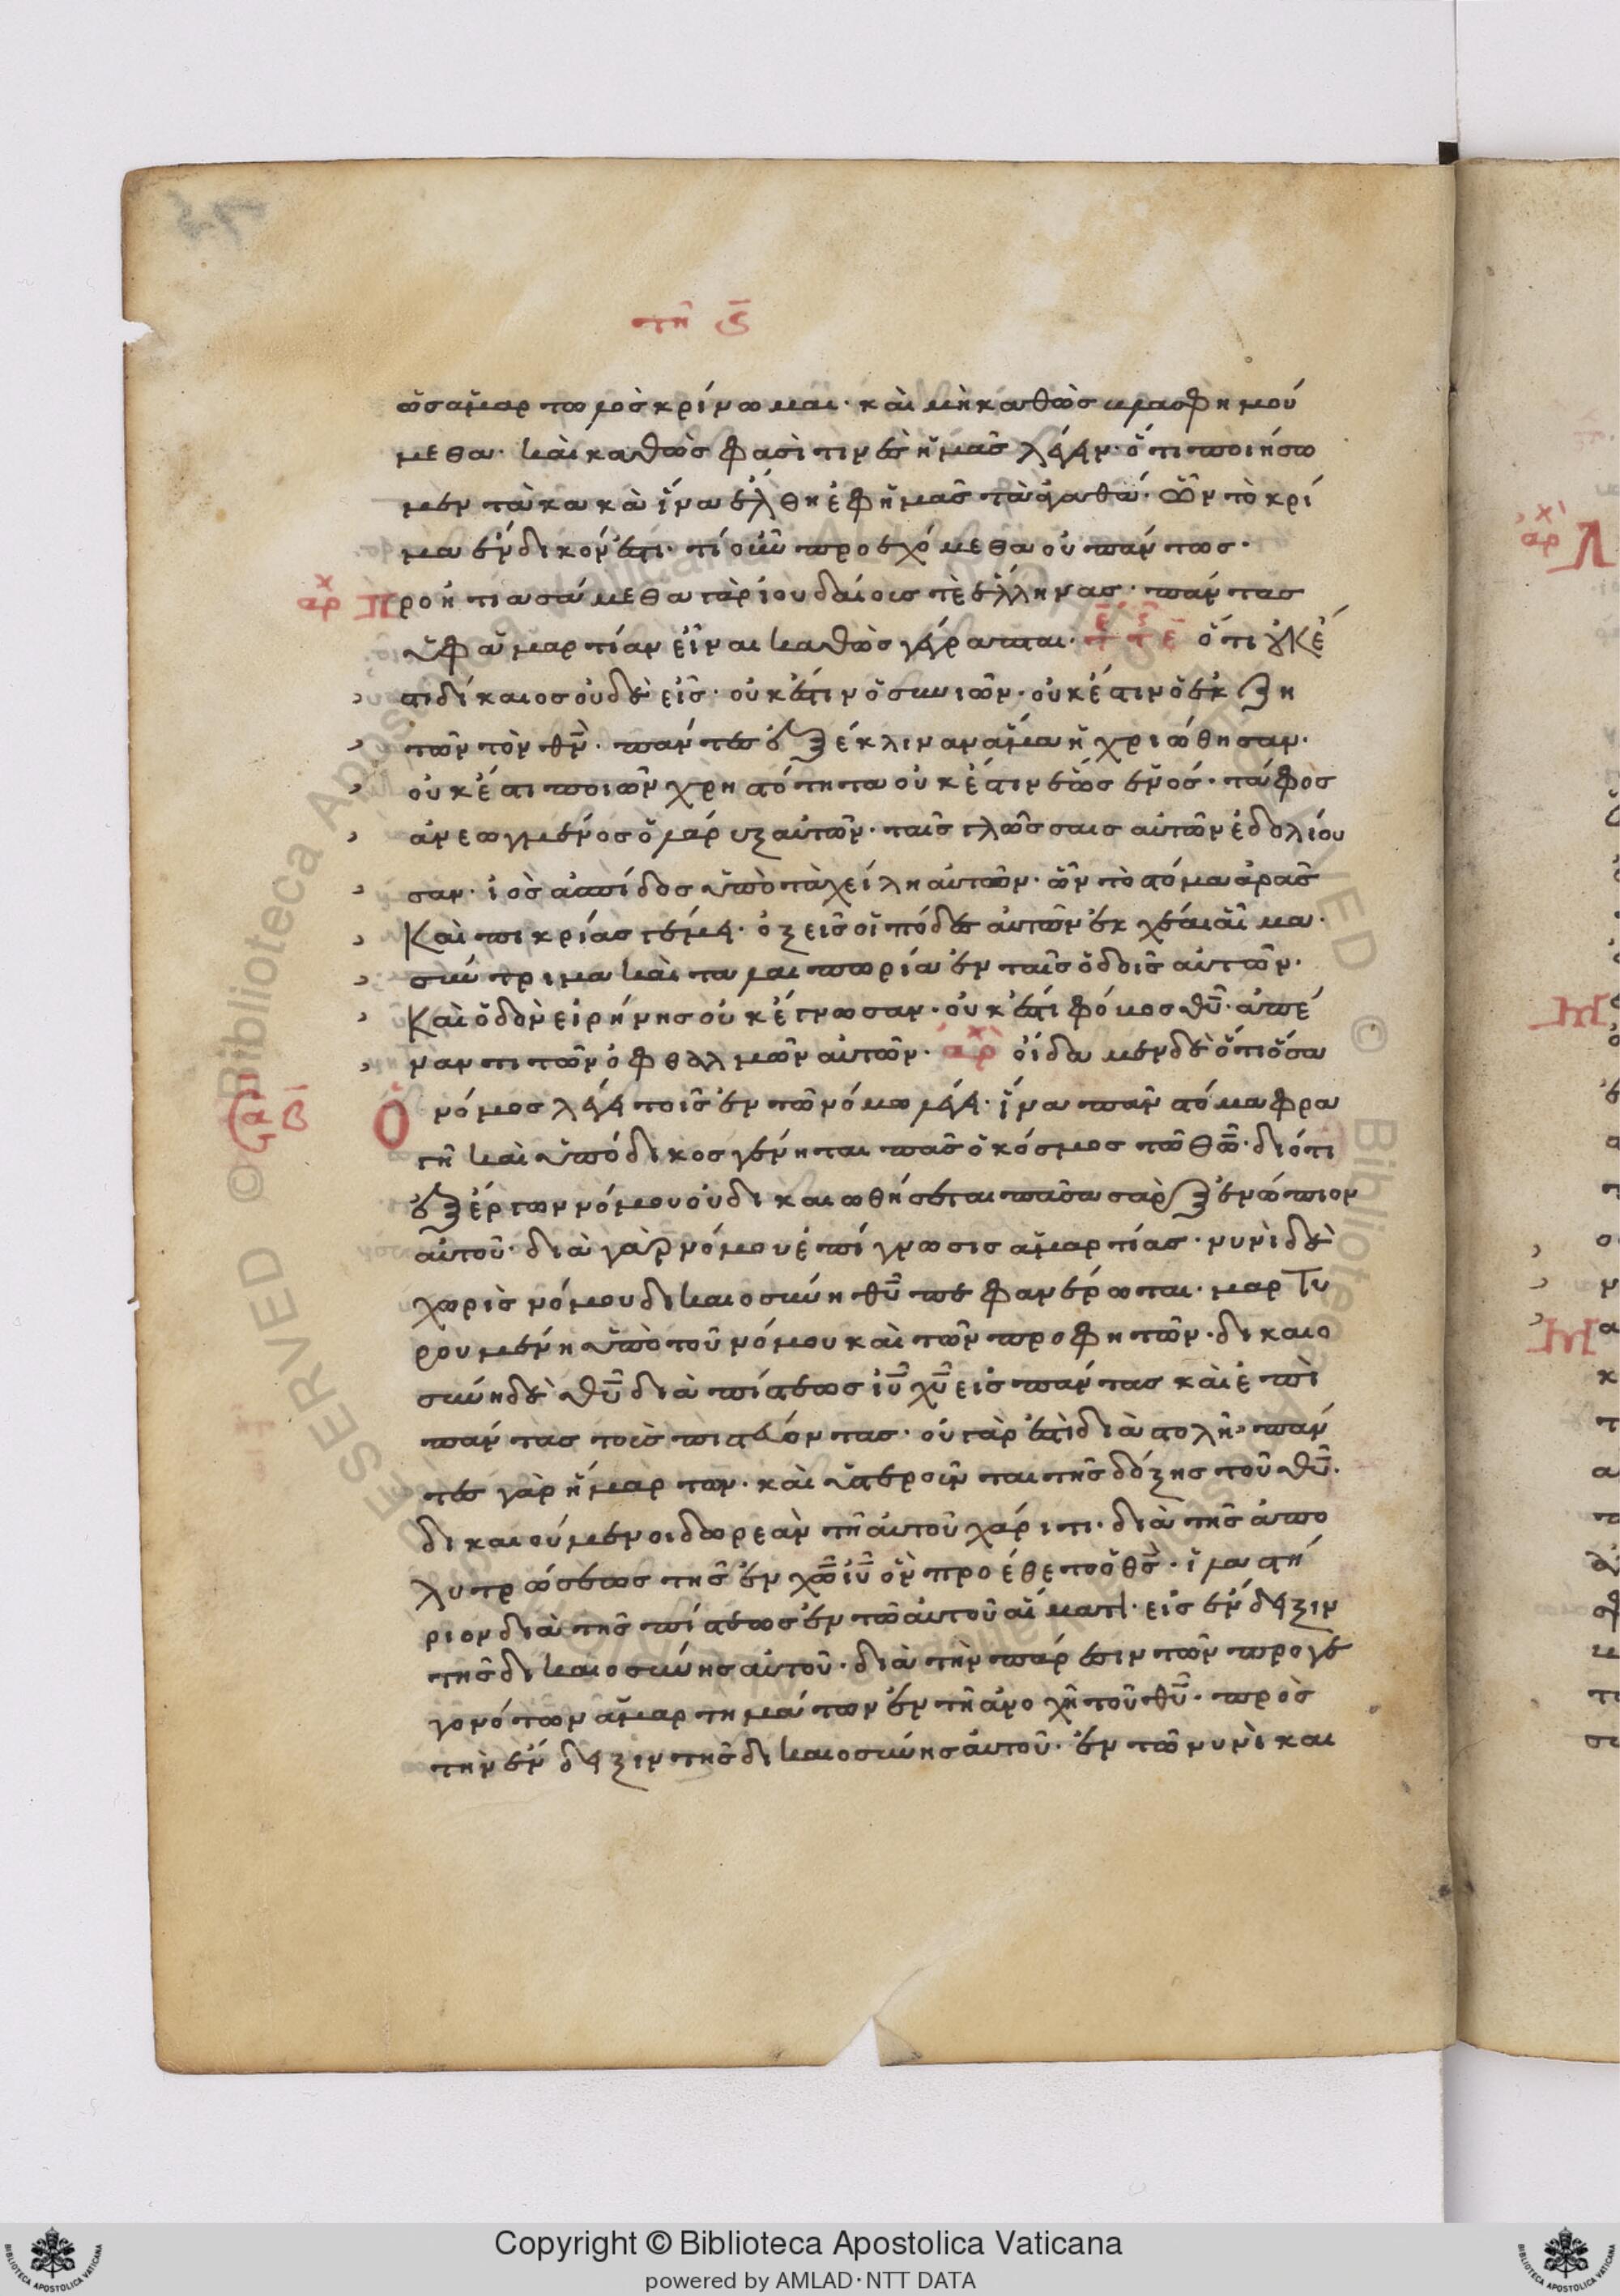 τῆ ϛ̄
ὡς ἁμαρτωλὸς κρίνωμαι· καὶ μὴ καθὼς βλασφημού
μεθα· καὶ καθὼς φασί τινες ἡμᾶς λέγειν· ὅτι ποιήσω
μεν τὰ κακὰ ἵνα ἔλθη ἐφ ἡμᾶς τὰ ἀγαθά· ὧν τὸ κρί
μα ἔνδικόν ἐστι· τί οὖν προεχόμεθα οὐ πάντως·
ἀρχ Προητιασάμεθα γὰρ ἰουδαίοις τὲ ἕλληνας· πάντας
ὑφ ἁμαρτίαν εἶναι καθὼς γέγραπται· ὅτι οὐκ έ
στι δίκαιος οὐδὲ εἷς· οὐκ ἔστιν ὁ συνιῶν· οὐκ έστιν ὁ ἐκζη
τῶν τὸν θν̄· πάντες ἐξέκλιναν ἅμα ἠχριώθησαν·
οὐκ έστι ποιῶν χρηστότητα οὐκ έστιν ἕως ἑνός· τάφος
ἀνεωγμένος ὁ λάρυγξ αὐτῶν· ταῖς γλώσσαις αὐτῶν ἐδολίου
σαν· ἰὸς ἀσπίδος ὑπὸ τὰ χείλη αὐτῶν· ὧν τὸ στόμα ἀρᾶς
καὶ πικρίας γέμει· ὀξεῖς οἱ πόδες αὐτῶν ἐκχέαι αἷμα·
σύντριμα καὶ ταλαιπωρία ἐν ταῖς ὁδοῖς αὐτῶν·
καὶ ὁδὸν εἰρήνης οὐκ έγνωσαν· οὐκ ἔστι φόβος θῡ· ἀπέ
ναντι τῶν ὀφθαλμῶν αὐτῶν· ἀρχ οἶδαμεν δὲ ὅτι ὅσα
Β̄ Ὁ νόμος λέγει τοῖς ἐν τῶ νόμω λέγει· ἵνα πᾶν στόμα φρα
γῆ καὶ ὑπόδικος γένηται πᾶς ὁ κόσμος τῶ θω̄· διότι
ἐξ έργων νόμου οὐ δικαιωθήσεται πᾶσα σὰρξ ἐνώπιον
αὐτοῦ· διὰ γὰρ νόμου ἐπίγνωσις ἁμαρτίας· νυνὶ δὲ
χωρὶς νόμου δικαιοσύνη θῡ πεφανέρωται· μαρτυ
ρουμένη ὑπὸ τοῦ νόμου καὶ τῶν προφητῶν· δικαιο
σύνη δὲ θῡ διὰ πίστεως ιῡ χῡ εἰς πάντας καὶ ἐπὶ
πάντας τοὺς πιστεύοντας· οὐ γὰρ ἐστὶ διαστολή· πάν
τες γὰρ ἥμαρτον· καὶ ὑστεροῦνται τῆς δόξης τοῦ θῡ·
δικαιούμενοι δωρεὰν τῆ αὐτοῦ χάριτι· διὰ τῆς ἀπο
λυτρώσεως τῆς ἐν χω̄ ιῡ ὃν προέθετο ὁ θς̄· ἱλαστή
ριον διὰ τῆς πίστεως ἐν τῶ αὐτοῦ αἵματι· εἰς ἔνδειξιν
τῆς δικαιοσύνης αὐτοῦ· διὰ τὴν πάρεσιν τῶν προγε
γονότων ἁμαρτημάτων ἐν τῆ ἀνοχῆ τοῦ θῡ· πρὸς
τὴν ἔνδειξιν τῆς δικαιοσύνης αὐτοῦ· ἐν τῶ νυνὶ και
Copyright © Biblioteca Apostolica Vaticana
powered by AMLAD·NTT DATA